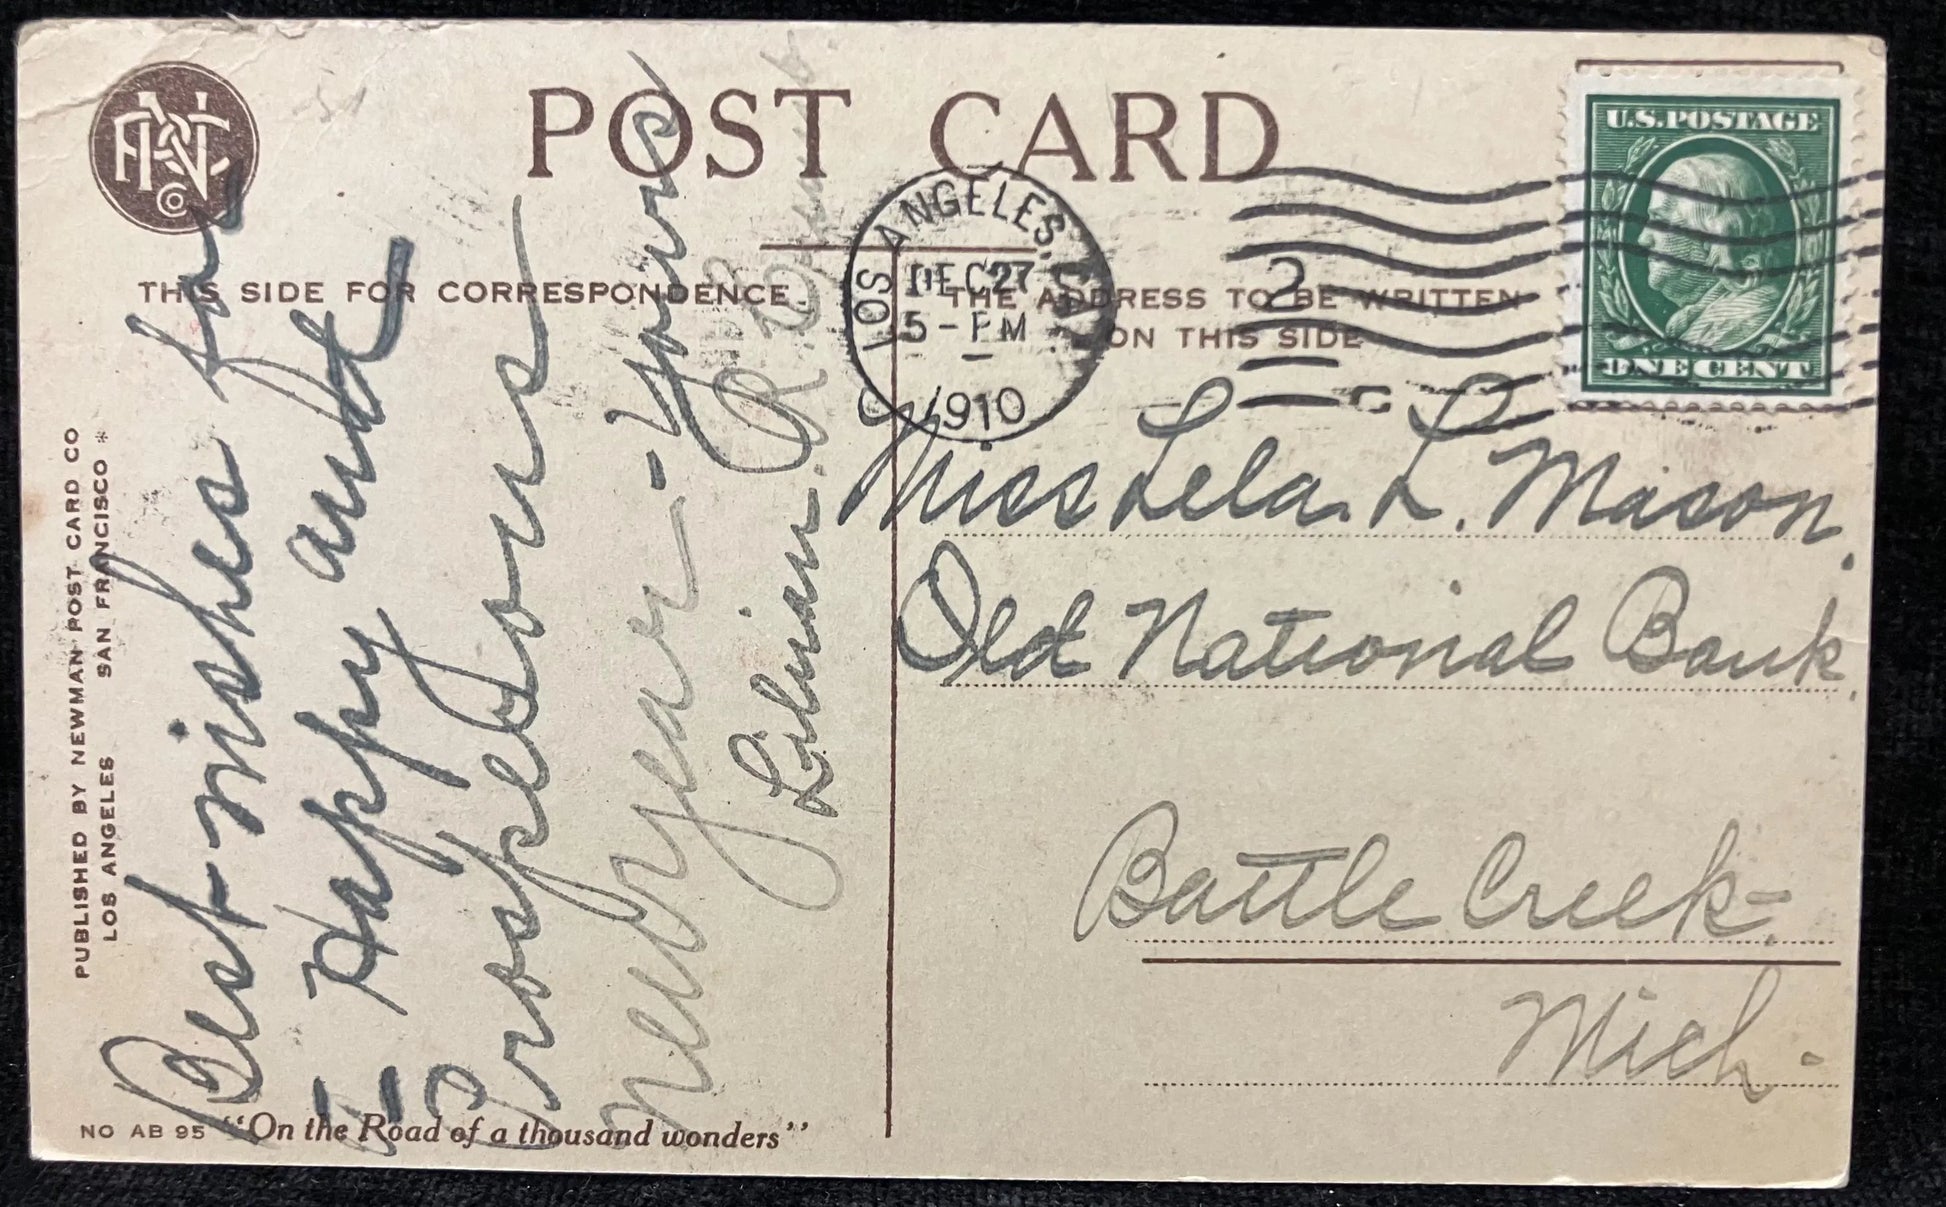 POST CARD
U.S. POSTAGE
ONE CENT
LOS ANGELES, CAL.
DEC 27
5 - PM
1910
2
THIS SIDE FOR CORRESPONDENCE.
THE ADDRESS TO BE WRITTEN
ON THIS SIDE
PUBLISHED BY NEWMAN POST CARD CO
LOS ANGELES SAN FRANCISCO
Best wishes for
a Happy and
Prosperous
new year - Yours
Lilian. R.
Miss Lela. L. Mason.
Old National Bank.
Battle Creek -
Mich.
NO AB 95 "On the Road of a thousand wonders"